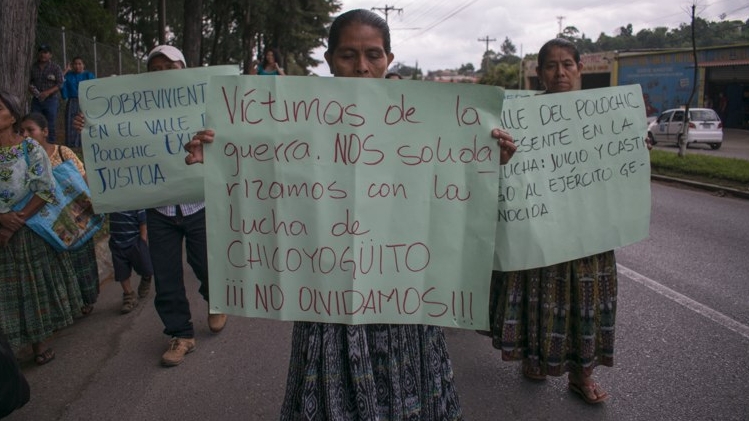 SOBREVIVIENT
EN EL VALLE
POLOCHIC
JUSTICIA
Víctimas de la
guerra. NOS solida
rizamos con la
lucha de
CHICOYOGÜITO
¡¡¡NO OLVIDAMOS!!!
VALLE DEL POLOCHIC
ESENTE EN LA
UCHA: JUICIO Y CASTI
GO AL EJÉRCITO GE-
NOCIDA